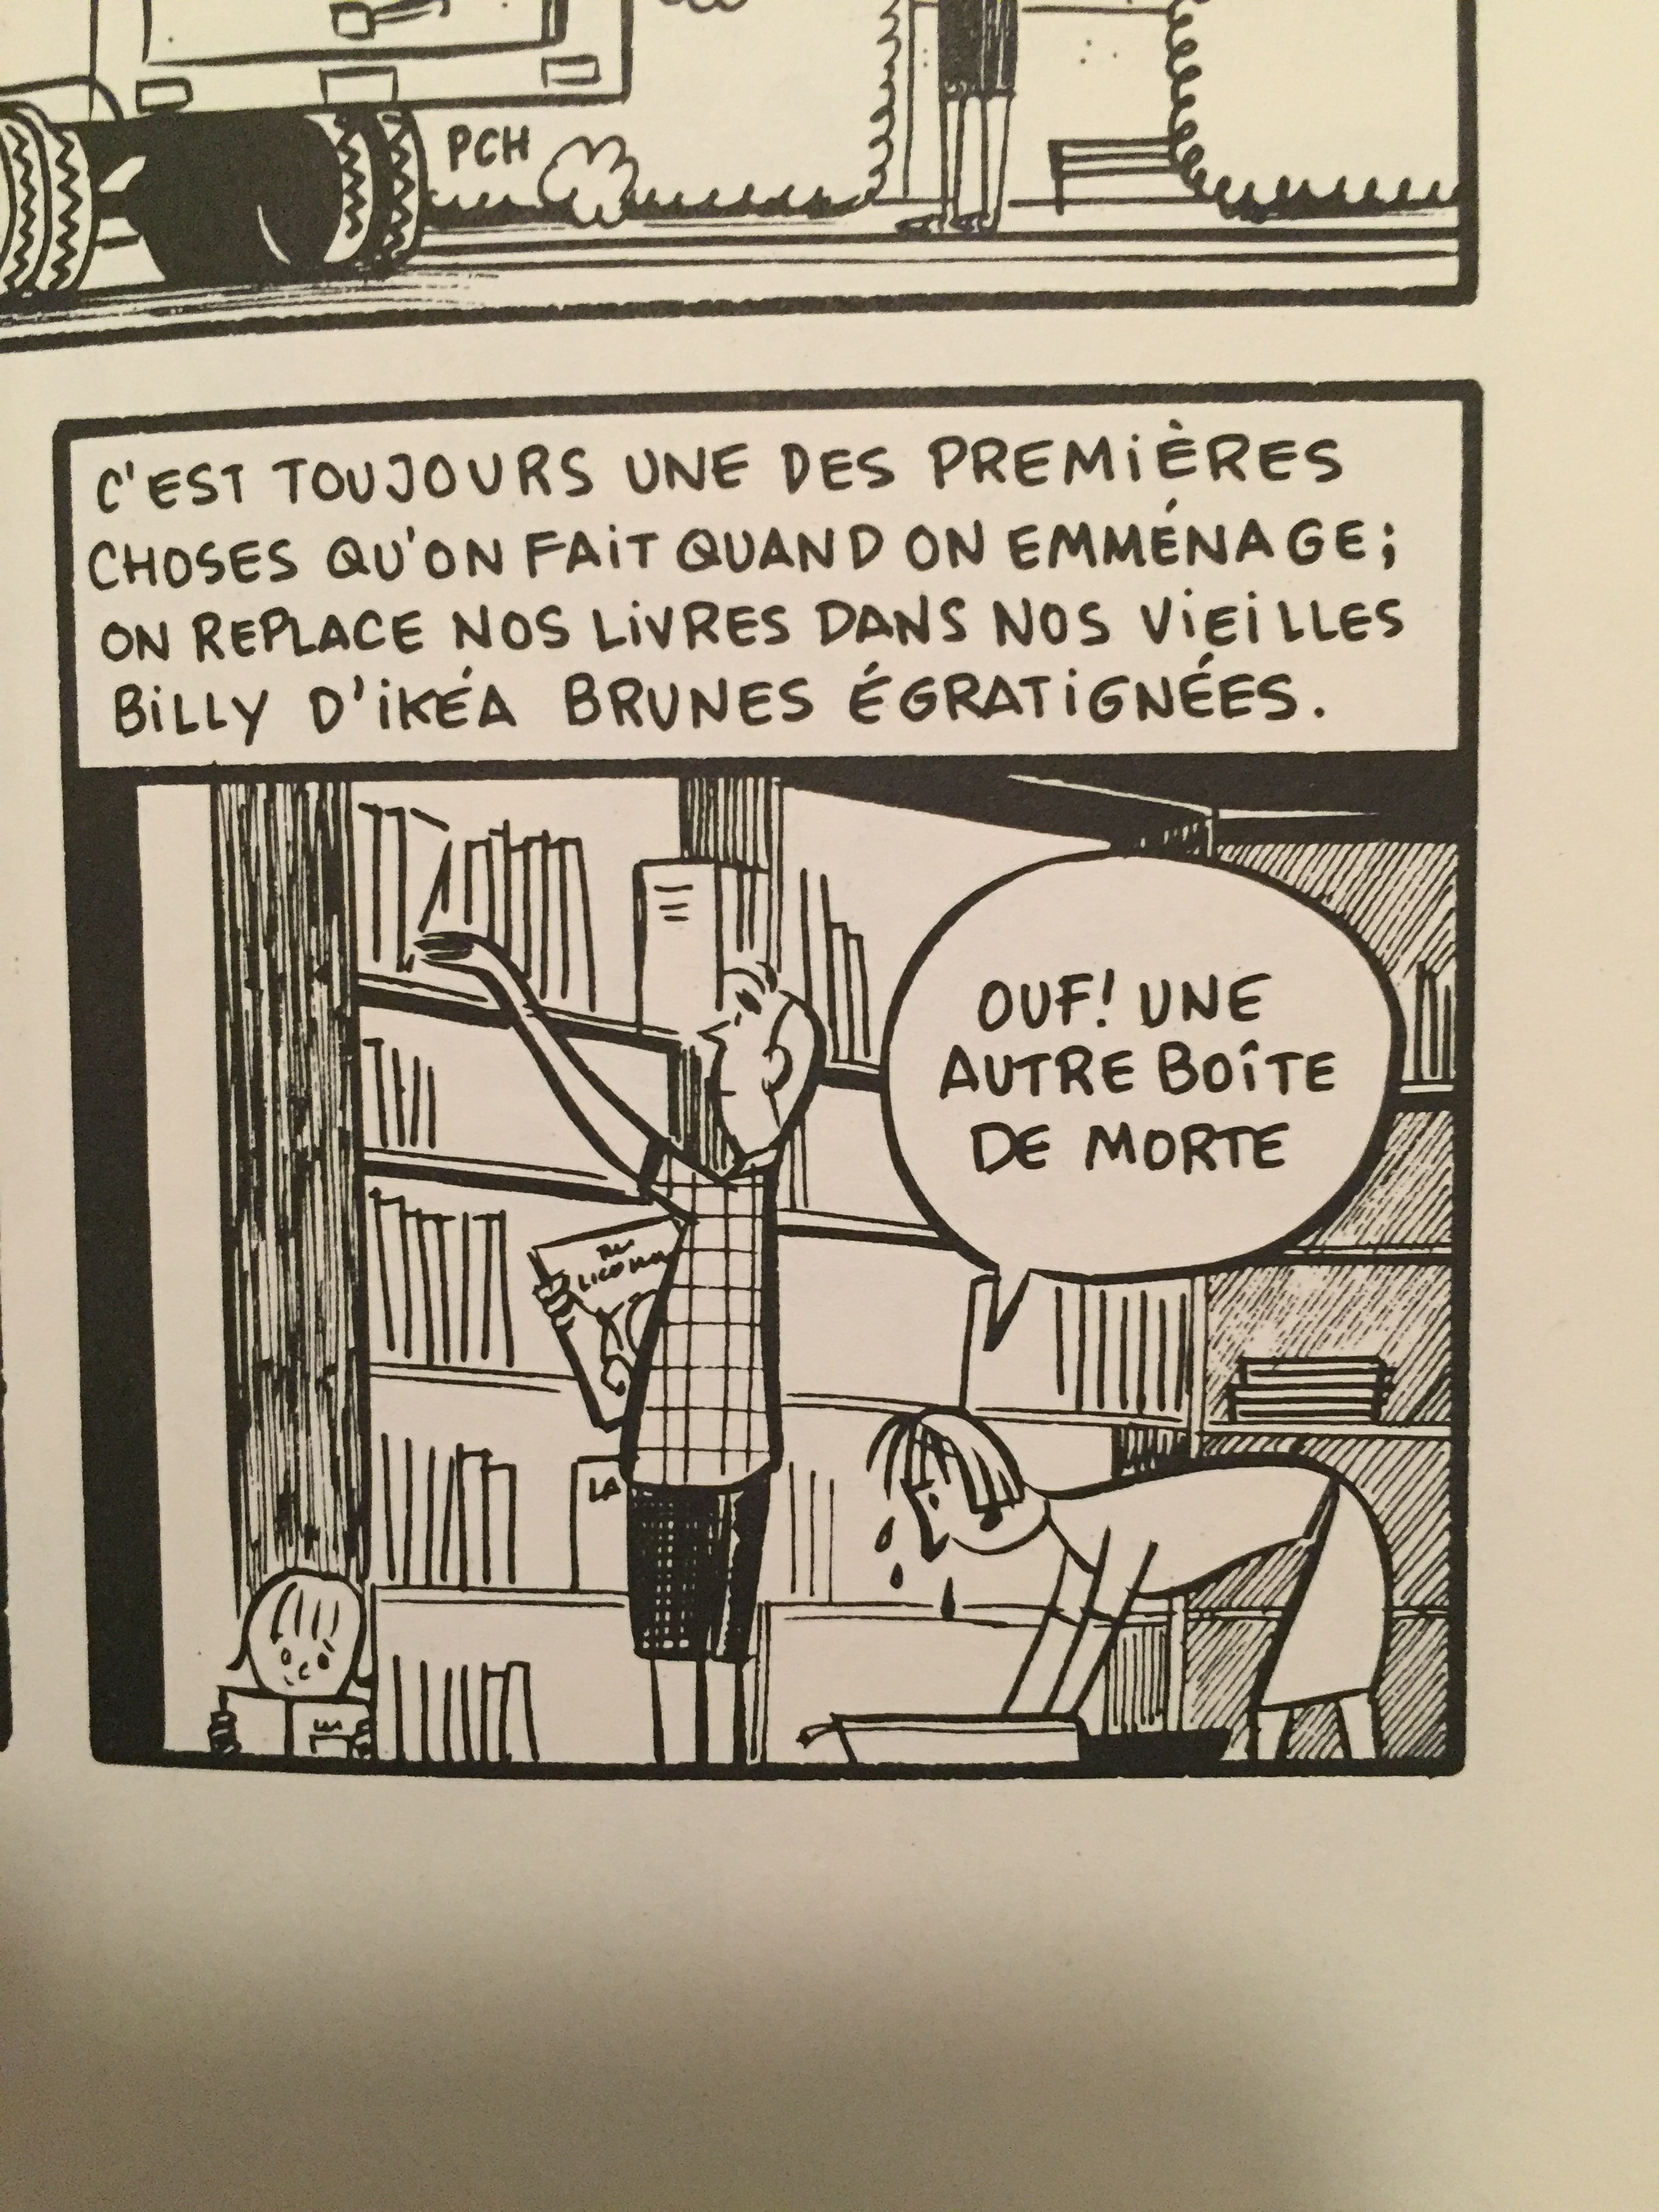 PCH
C'EST TOUJOURS UNE DES PREMIÈRES
CHOSES QU'ON FAIT QUAND ON EMMÉNAGE;
ON REPLACE NOS LIVRES DANS NOS VIEILLES
BILLY D'IKÉA BRUNES ÉGRATIGNÉES.
OUF! UNE
AUTRE BOÎTE
DE MORTE
LA